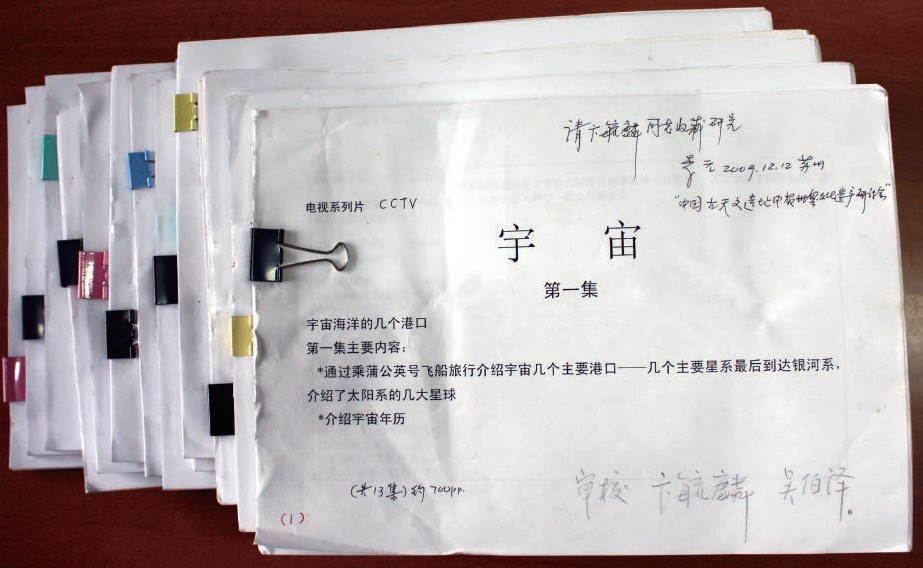 请卞毓麟同志收藏研究
李元 2009.12.12 苏州
"中国古天文遗址申报世界文化遗产研讨会"
电视系列片 CCTV
宇 宙
第一集
宇宙海洋的几个港口
第一集主要内容：
*通过乘蒲公英号飞船旅行介绍宇宙几个主要港口——几个主要星系最后到达银河系，
介绍了太阳系的几大星球
*介绍宇宙年历
(共13集)约700pp.
审校 卞毓麟 吴伯泽
(1)